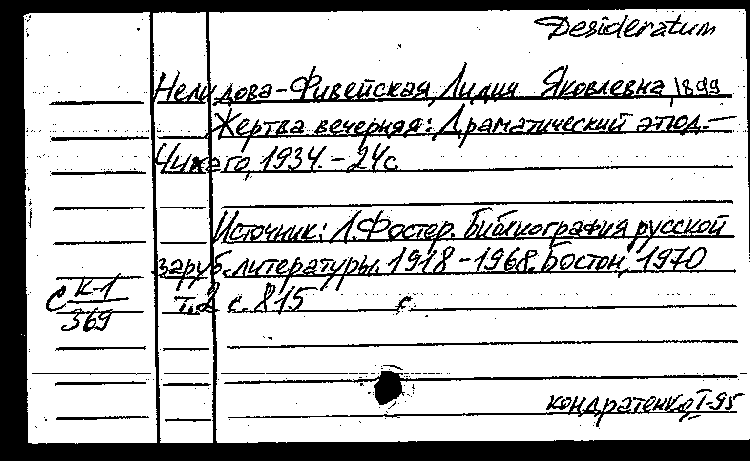 Desideratum
Нелидова-Фивейская, Лидия Яковлевна, 1899
Жертва вечерняя: Драматический этюд.-
Чикаго, 1934.-24с
Источник: Л.Фостер. Библиография русской
заруб. литературы. 1918-1968. Бостон, 1970
т.2 с.815 с
С К-1
369
Кондратенко I-95